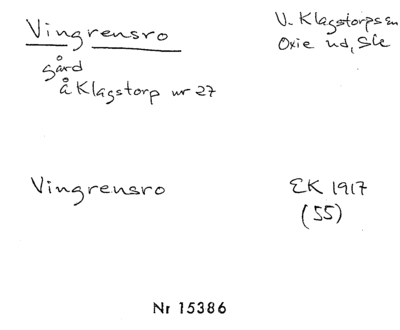 Vingrensro
V. Klagstorps sn
Oxie hd, Skå
gård
å Klagstorp nr 27
Vingrensro
EK 1917
(55)
Nr 15386